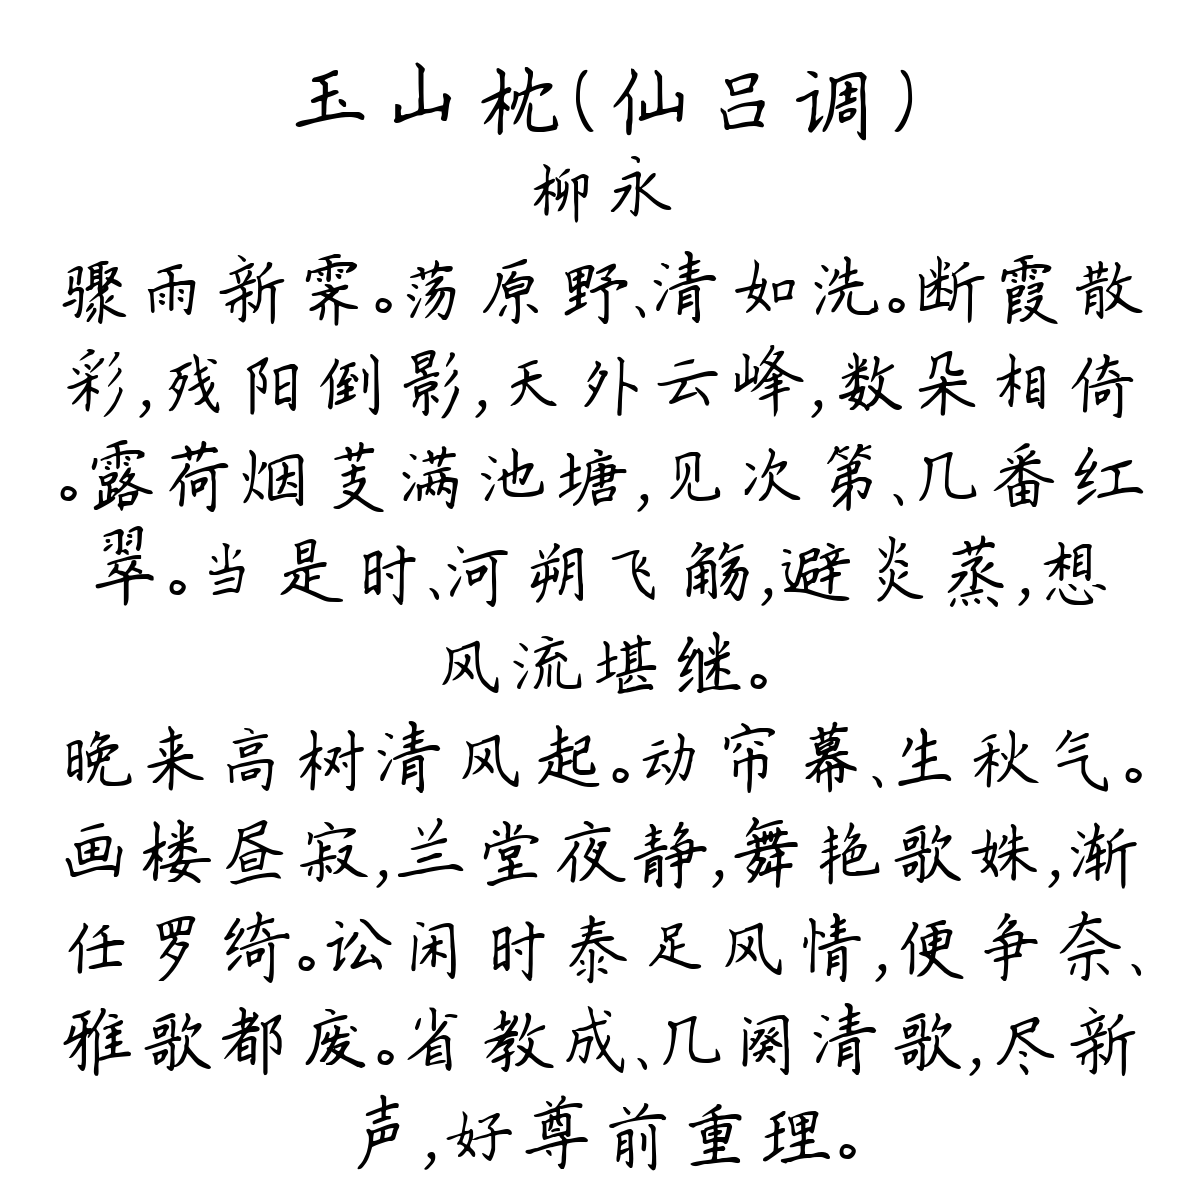 玉山枕(仙吕调)
柳永
骤雨新霁。荡原野、清如洗。断霞散
彩,残阳倒影,天外云峰,数朵相倚
。露荷烟芰满池塘,见次第、几番红
翠。当是时、河朔飞觞,避炎蒸,想
风流堪继。
晚来高树清风起。动帘幕、生秋气。
画楼昼寂,兰堂夜静,舞艳歌姝,渐
任罗绮。讼闲时泰足风情,便争奈、
雅歌都废。省教成、几阕清歌,尽新
声,好尊前重理。